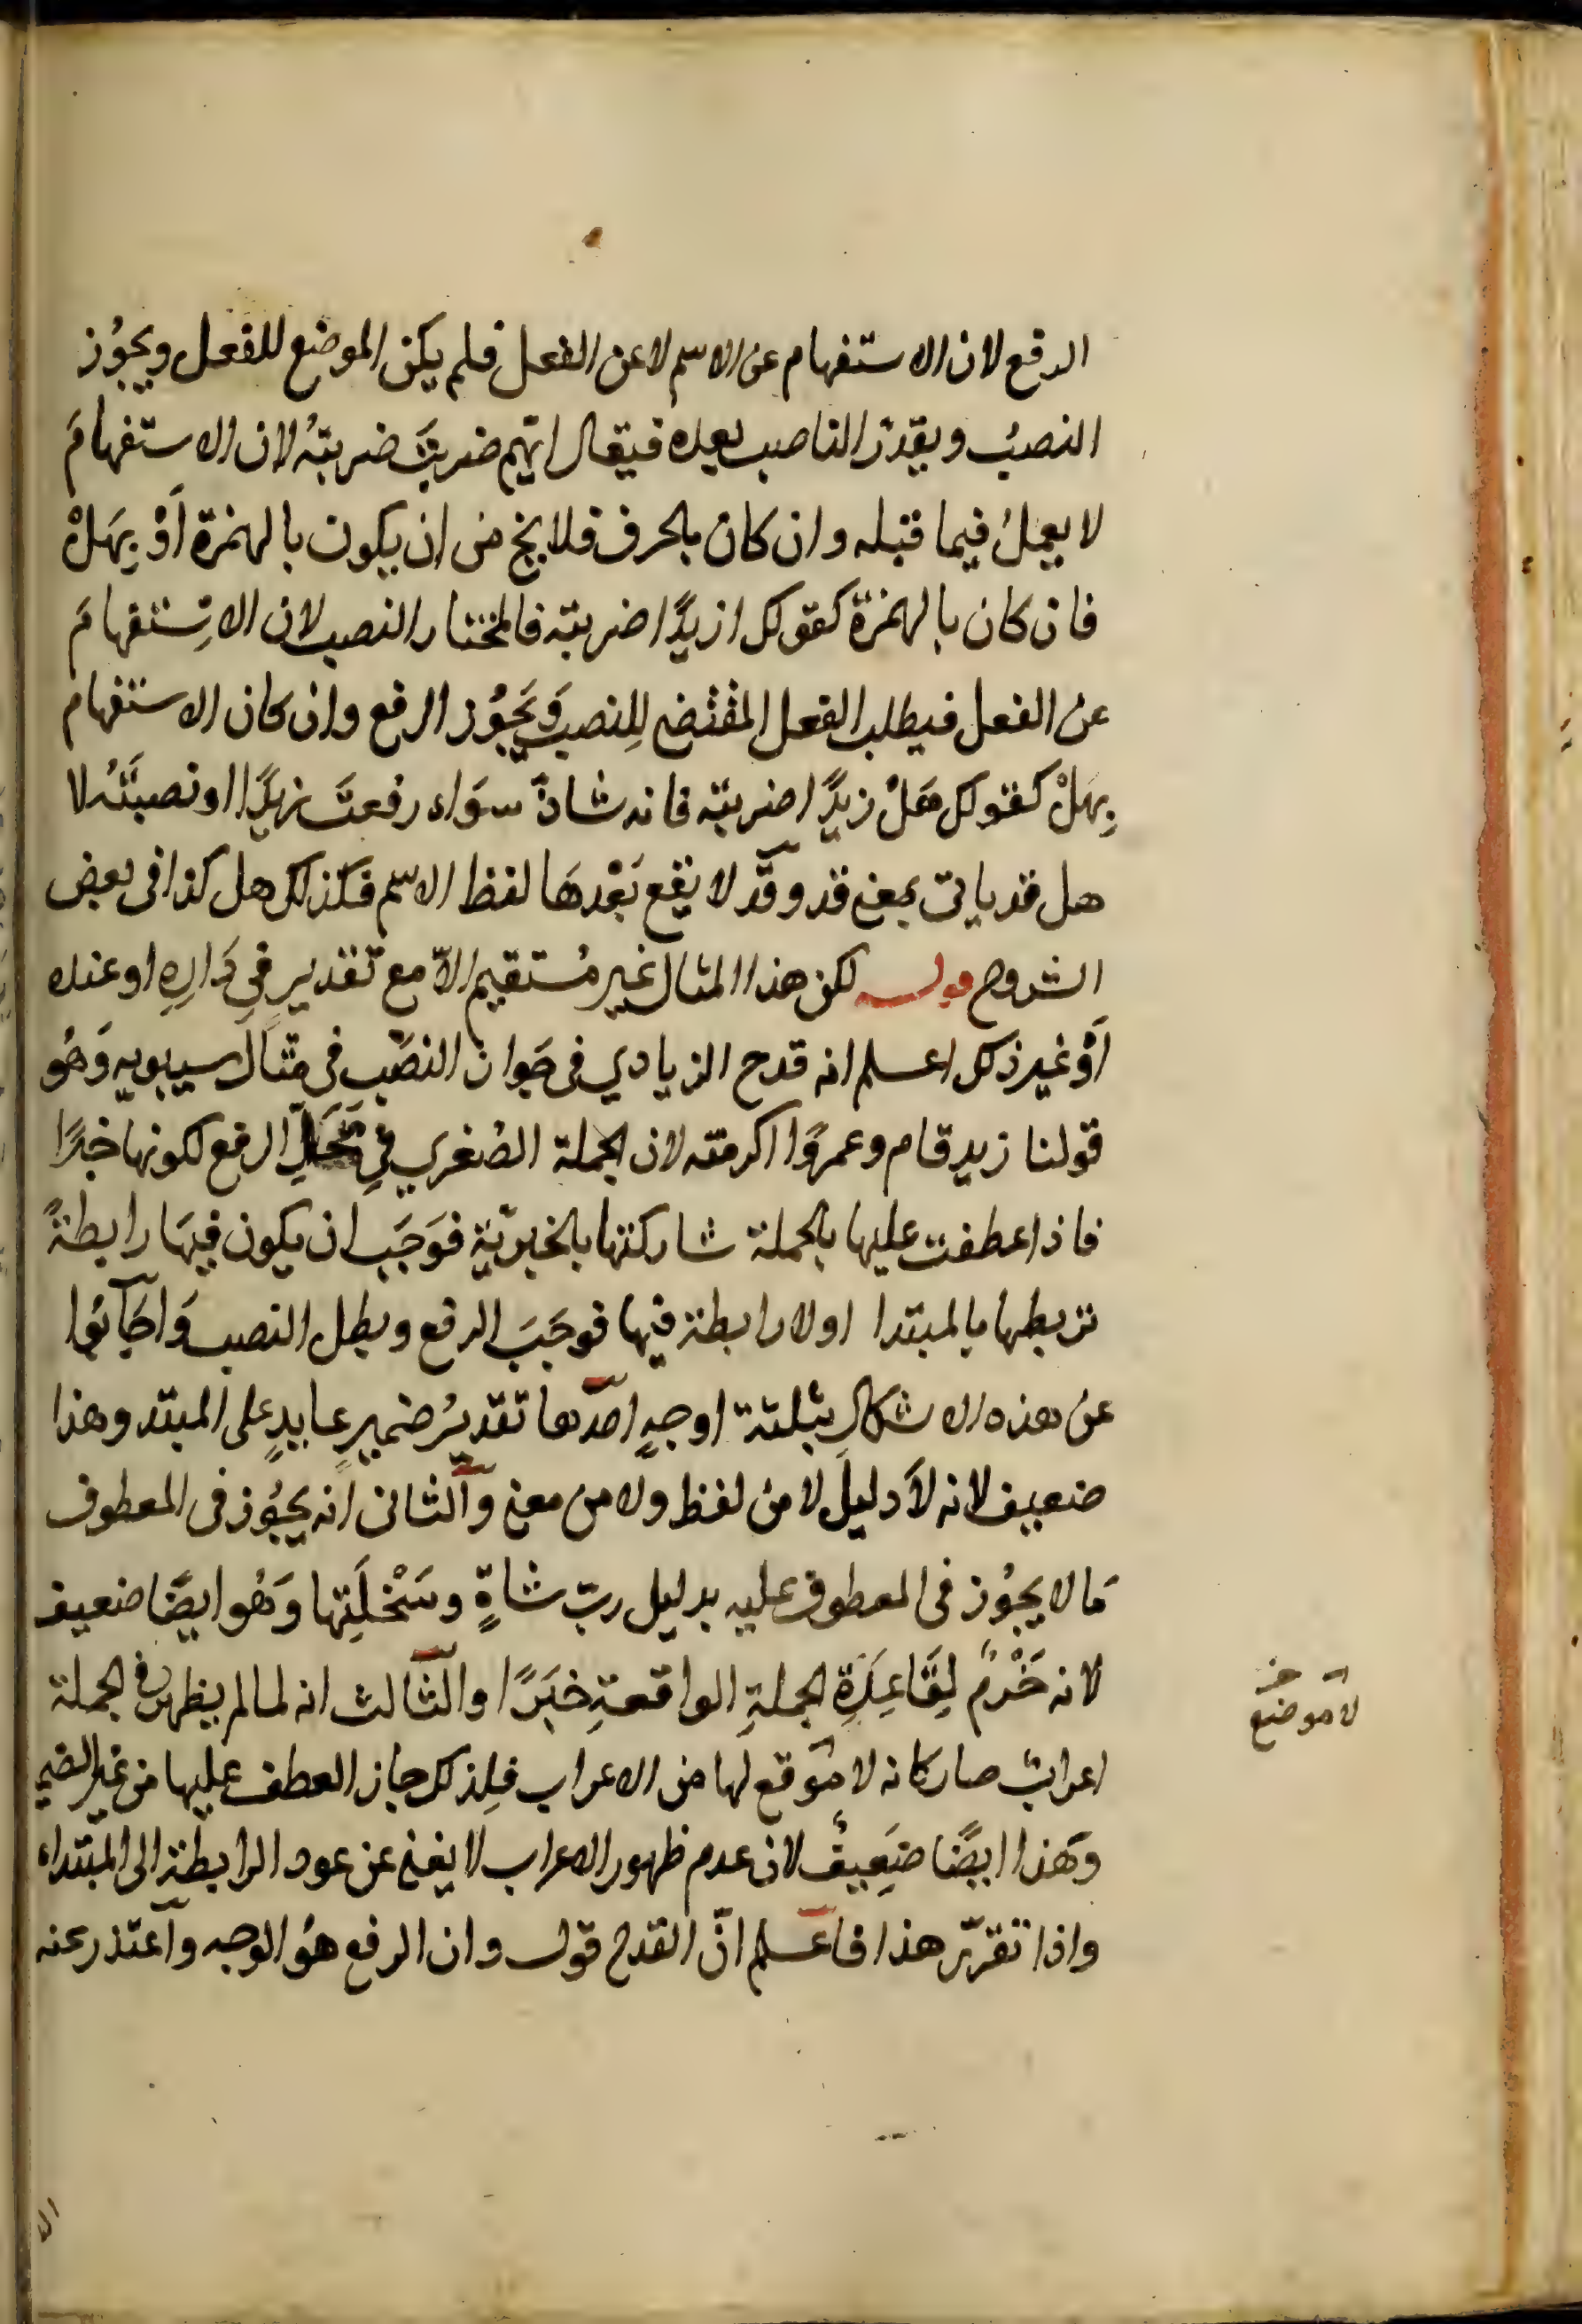 الرفع لان الاستفهام عن الاسم لا عن الفعل فلم يكن الموضع للفعل ويجوُز
النصبُ ويقدر الناصب بعده فيقال ايّهم ضربتَ ضربتهُ لان الاستفهامَ
لا يعملُ فيما قبله وان كان بالحرف فلا يخ من ان يكون بالهمزة اَوْ بِهَلْ
فان كان بالهمزة كقولك ازيدًا ضربته فالمختار النصب لان الاستفهامَ
عن الفعل فيطلب الفعل المقتضى لِلنصب وَيَجُوز الرفع وان كان الاستفهام
بِهَلْ كقولك هَلْ زيدًا ضربته فانه شاذّ سوَاء رفعتَ زيدًا او نصبتَهُ لا
هل قد ياتى بمعنى قد وقد لا يقع بَعْدهَا لفظ الاسم فكذلك هل كذا فى بعض
الشروح قوله لكن هذا المثال غير مُستقيم الاّ مع تقدير فِي دَارِهِ او عنده
اَوْ غير ذلك اعلم انه قدح الزيادي فى جَواز النصَبِ فى مثال سيبويه وَهُو
قولنا زيد قام وعمروًا اكرمته لان الجملة الصُغري فِي مَحَلِّ الرفع لكونها خبرًا
فاذا عطفت عليها بالجملة شاركتها بالخبريّة فوَجَبَ ان يكون فيهَا رابطةً
تربطها بالمبتدا اولا رابطة فيها فوجَبَ الرفع وبطل النصب وَاجَابُوا
عن هذه الاشكالِ بثلثة اوجهٍ احدها تقديرُ ضميرٍ عايدٍ على المبتد وهذا
ضعيف لانه لاَ دليلَ لا من لفظ ولا من معنى والثانى انه يجُوز فى المعطوف
مَا لا يجوُز فى المعطوف عليه بدليل ربّ شاةٍ وسَخْلَتِها وَهُو ايضًا ضعيف
لانه خَرْمٌ لِقَاعِدَةِ الجملةِ الواقعةِ خبَرًا والثالث انه لما لم يظهر فى الجملة
اعرابٌ صار كانه لا مَوقع لها من الاعراب فلِذلك جاز العطف عليها من غير الضمير
لا موضع خ
وَهَذا ايضًا ضَعِيفٌ لان عدم ظهور الاعراب لا يغنى عن عود الرابطة الى المبتداء
واذا تقرّر هذا فاعلم انّ القدح قول وان الرفع هوُ الوجه واعتذر عنه